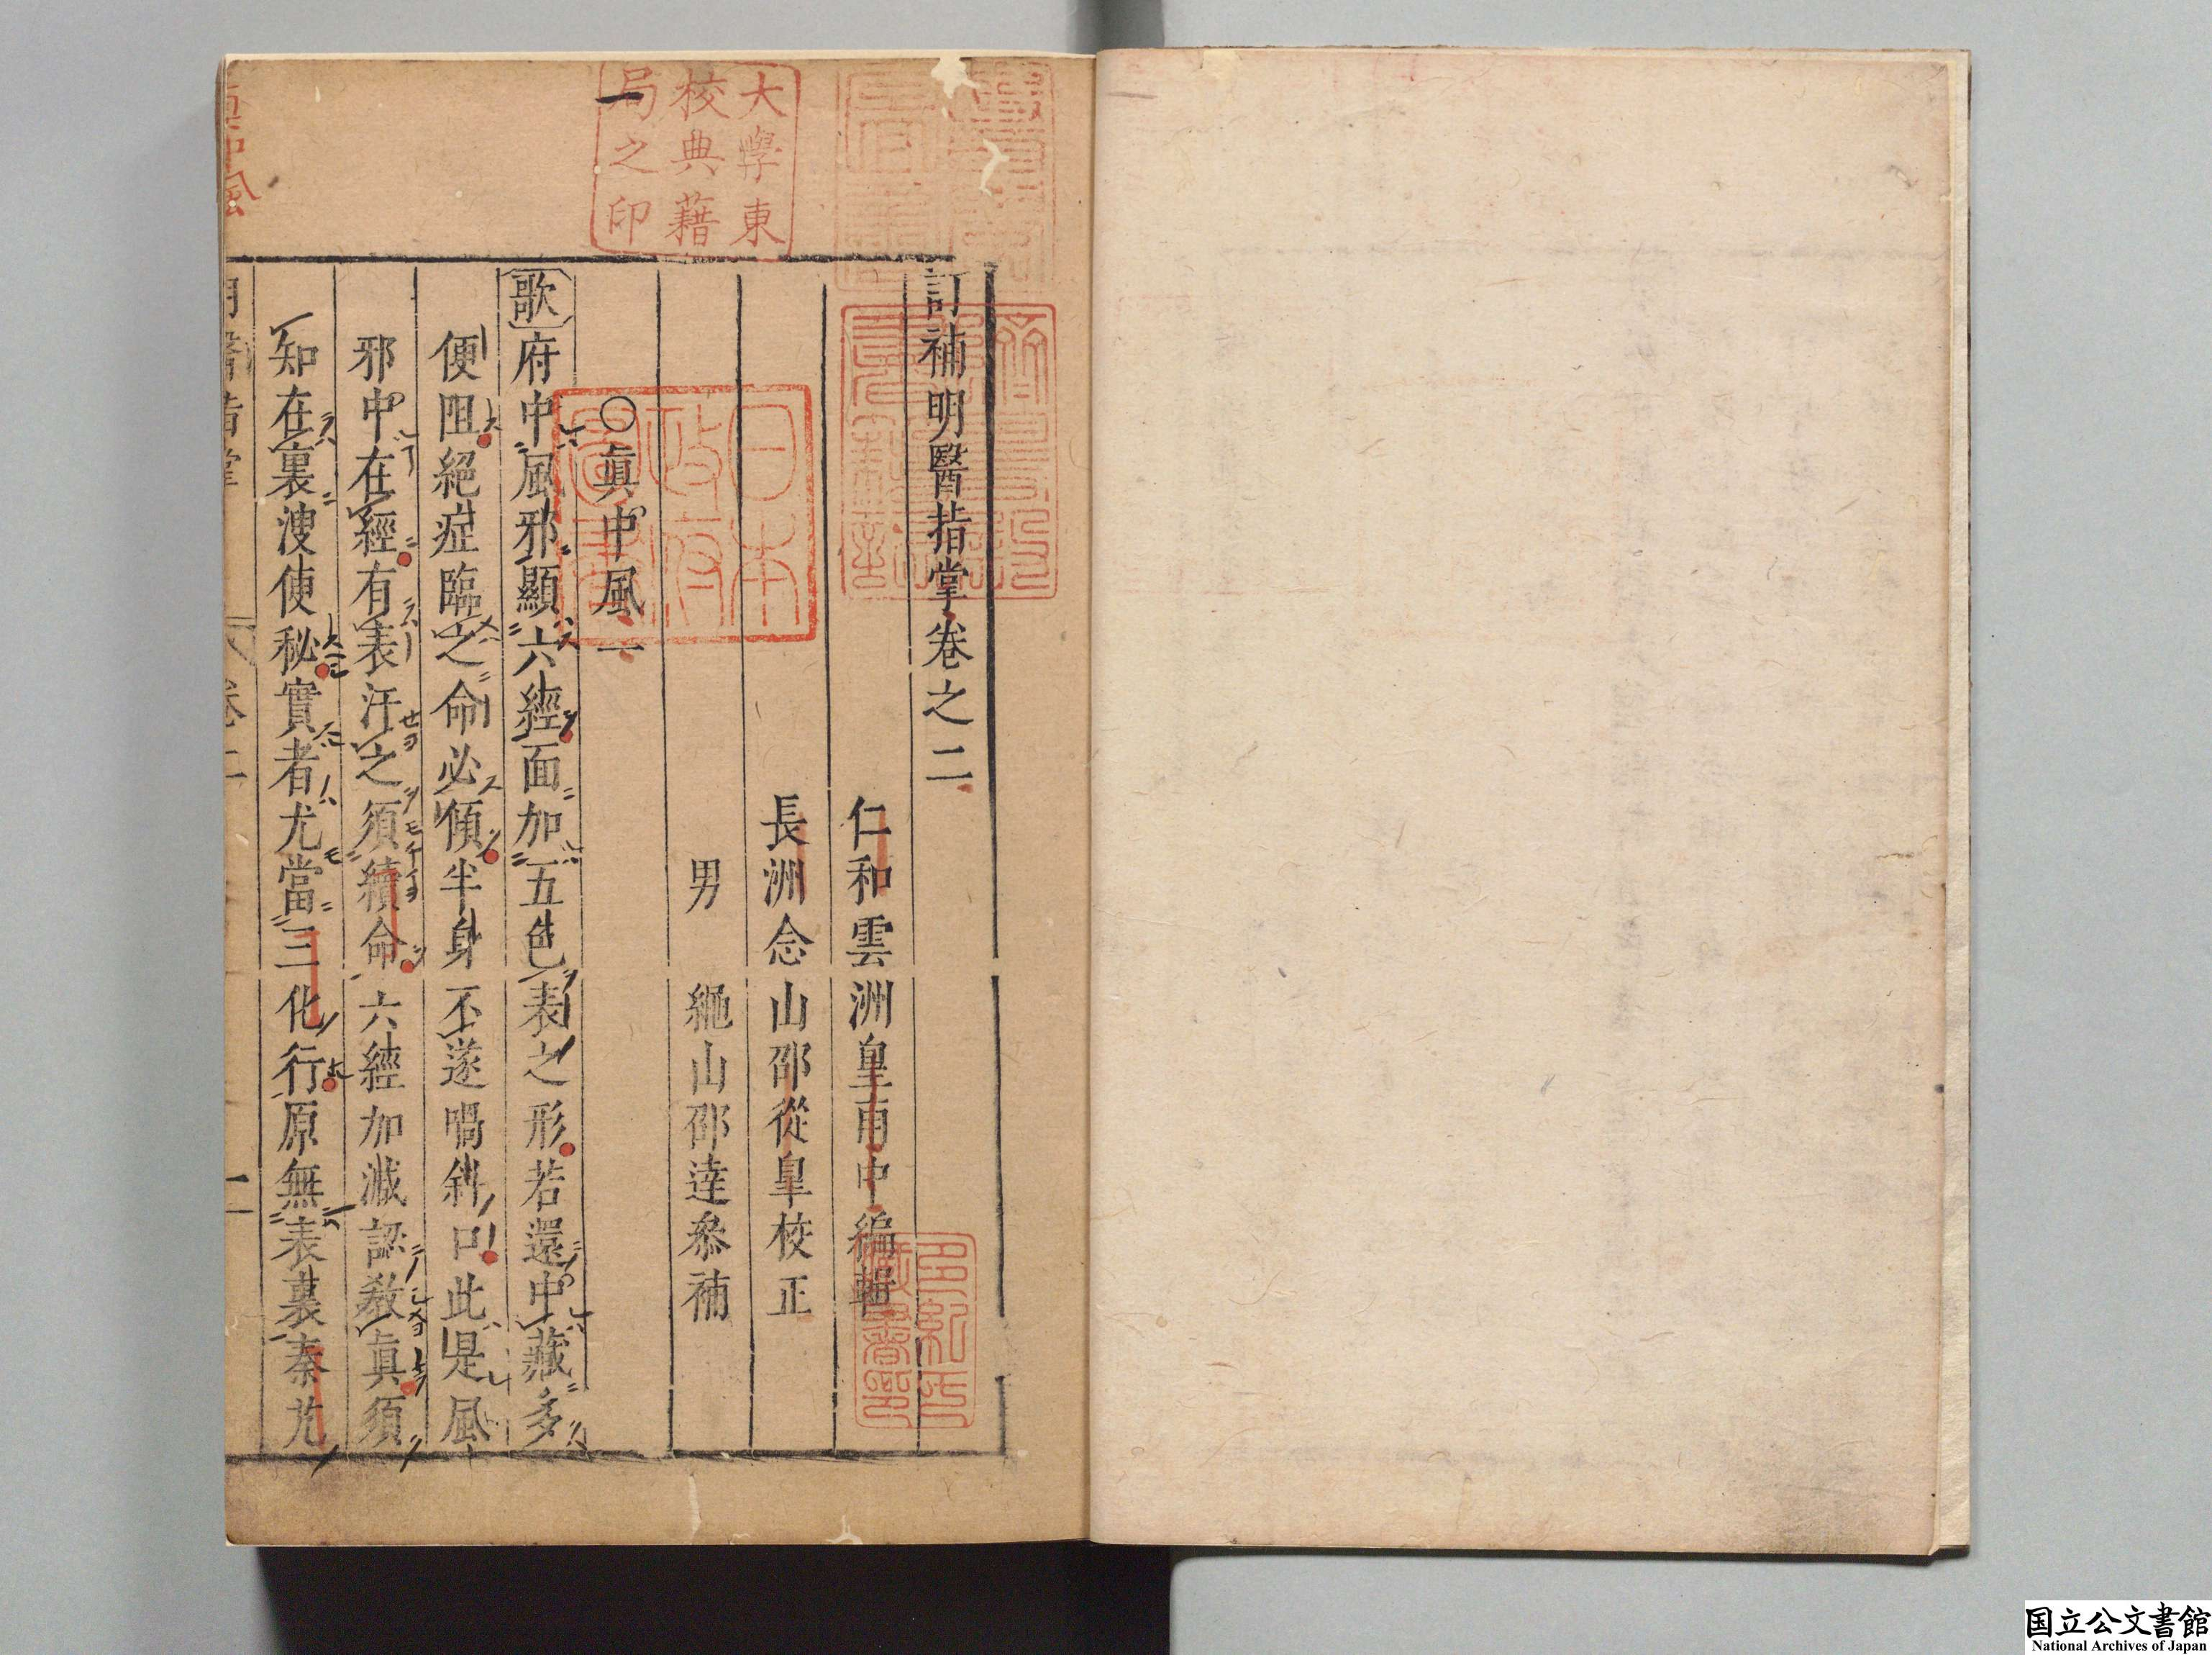 訂補明醫指掌卷之二
仁和雲洲皇甫中編輯
長洲念山邵從皐校正
男　繩山邵達叅補
○眞中風一
歌府中風邪顯六經面加五色表之形若還中藏多
便阻絕症臨之命必傾半身不遂喎斜口此是風
邪中在經有表汗之須續命六經加減認教眞須
知在裏溲便秘實者尤當三化行原無表裏秦艽
大學東
校典藉
局之印
日本
政府
圖書
多紀氏
藏書印
国立公文書館
National Archives of Japan